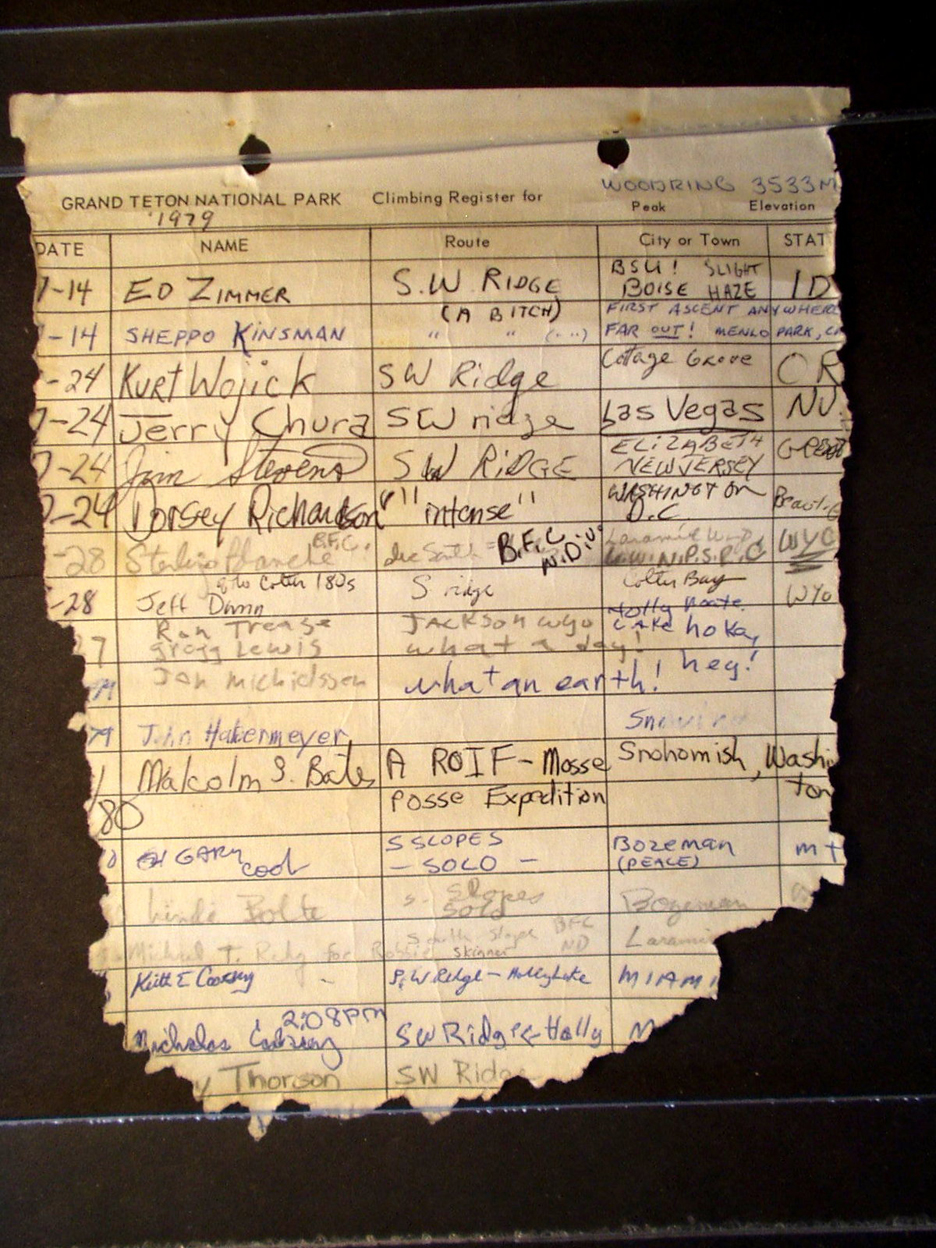 WOODRING 3533M
GRAND TETON NATIONAL PARK Climbing Register for Peak Elevation
1979
DATE NAME Route City or Town STAT
7-14 ED ZIMMER S.W. RIDGE BSU! SLIGHT BOISE HAZE ID
(A BITCH)
-14 SHEPPO KINSMAN " " (" ") FIRST ASCENT ANYWHERE
FAR OUT! MENLO PARK, CA
-24 Kurt Wojick SW Ridge Cottage Grove OR
7-24 Jerry Chura SW ridge Las Vegas NV.
7-24 Jim Stevens SW RIDGE ELIZABETH NEW JERSEY
7-24 Dorsey Richardson "" intense" WASHINGTON D.C
-28 B.F.C. B.F.C. N.D. WYO
-28 Jeff Dunn S ridge Colter Bay WYO
Holly
7 Ron JACKSON WYO Lake hoka
Gregg Lewis what a day!
79 Jon what an earth! hey!
79 John Habermeyer
1 Malcolm S. Bates A ROIF-Mosse Snohomish, Washi
80 Posse Expedition ton
GARY cool S SLOPES Bozeman mt
- SOLO - (PEACE)
S. Slopes Bozeman
Solo
Michael T. for Robbie Skinner South Slope BFC ND Larami
Keith E S.W Ridge - Holly Lake MIAMI
2:08PM
Nicholas SW Ridge Holly M
Thorson SW Ridge